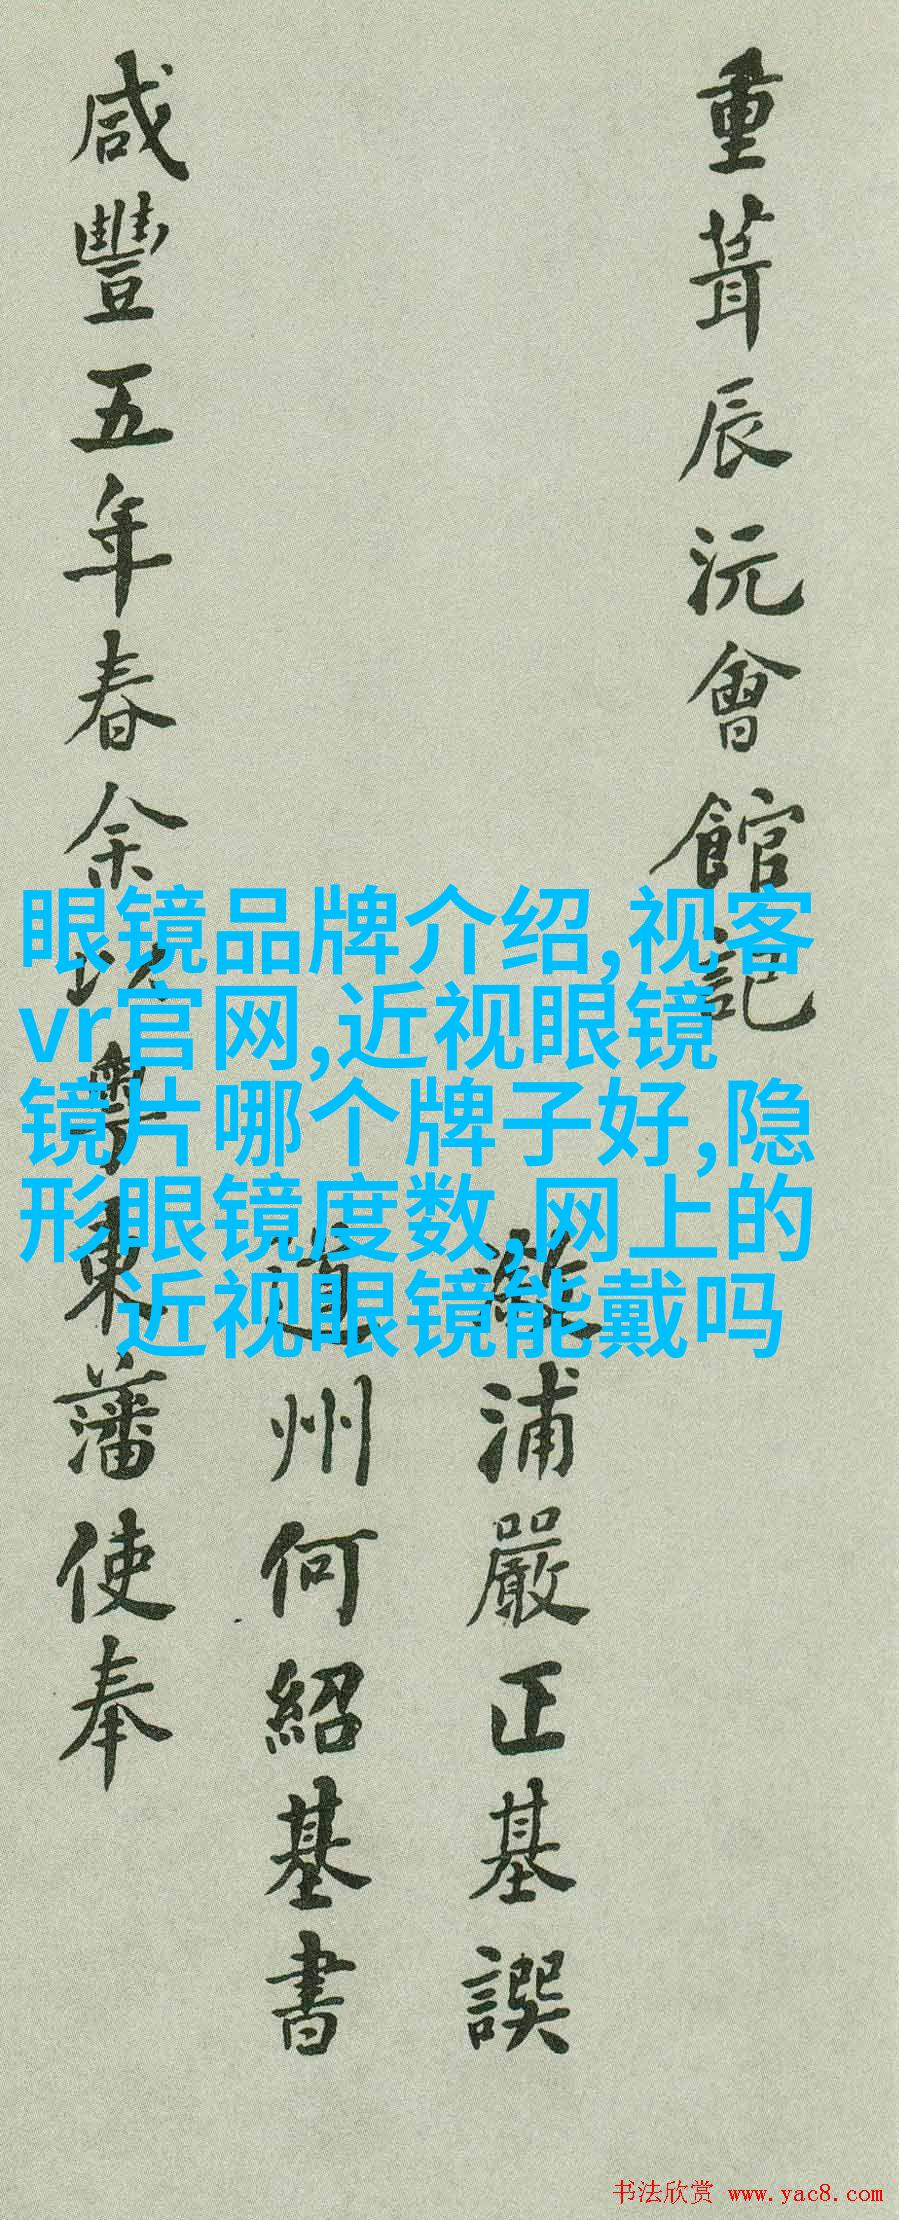 重葺辰沅會館記
漵浦嚴正基譔
道州何紹基書
咸豐五年春余以粵東藩使奉
眼镜品牌介绍,视客
vr官网,近视眼镜
镜片哪个牌子好,隐
形眼镜度数,网上的
近视眼镜能戴吗
书法欣赏 www.yac8.com